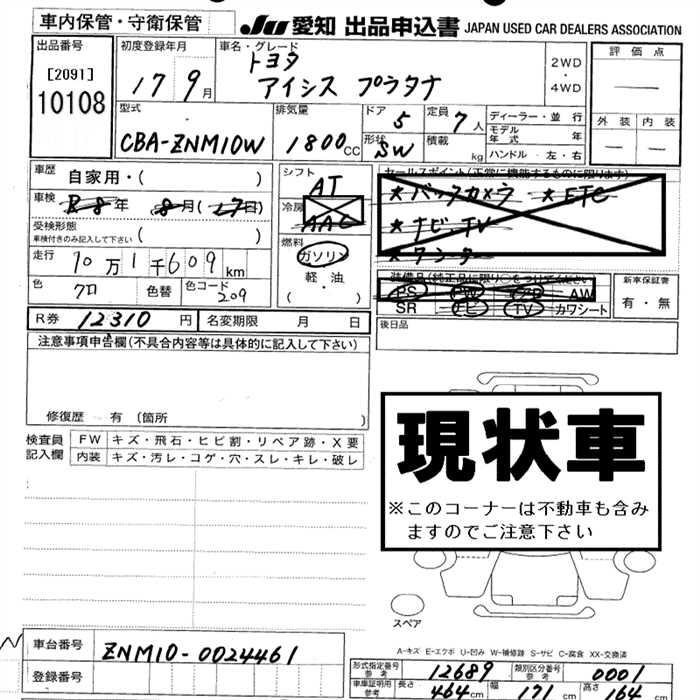 車内保管・守衛保管
JU 愛知 出品申込書 JAPAN USED CAR DEALERS ASSOCIATION
出品番号
[2091]
10108
初度登録年月
17 9月
車名・グレード
トヨタ
アイシス プラタナ
2WD
・
4WD
評価点
外装 内装
型式
CBA-ZNM10W
排気量
1800cc
ドア 5
形状 SW
定員 7人
積載 kg
ディーラー・並行
モデル年式 年
ハンドル・左・右
車歴 自家用・( )
車検 R8年 8月(17日)
受検形態
車検付きのみ記入して下さい ( )
走行 10万1千609km
色 クロ 色替 色コード 209
シフト
AT
冷房
AAC
燃料
ガソリン
・
軽油
・
( )
セールスポイント(正常に機能するものに限ります)
★バックカメラ ★ETC
★ナビ・TV
装備品(純正品に限り○をつけてください)
PS PW AW
SR ナビ TV カワシート
新車保証書
有・無
後日品
R券 12310円 名変期限 月 日
注意事項申告欄(不具合内容等は具体的に記入して下さい)
修復歴 有 (箇所 )
検査員記入欄
FW キズ・飛石・ヒビ割・リペア跡・X要
内装 キズ・汚レ・コゲ・穴・スレ・キレ・破レ
現状車
※このコーナーは不動車も含み
ますのでご注意下さい
スペア
A-キズ E-エクボ U-凹み W-補修跡 S-サビ C-腐食 XX-交換済
車台番号 ZNM10-0024461
登録番号
形式指定番号 参考 12689 類別区分番号 参考 0001
車庫証明用 参考 長さ 464cm 幅 171cm 高さ 164cm